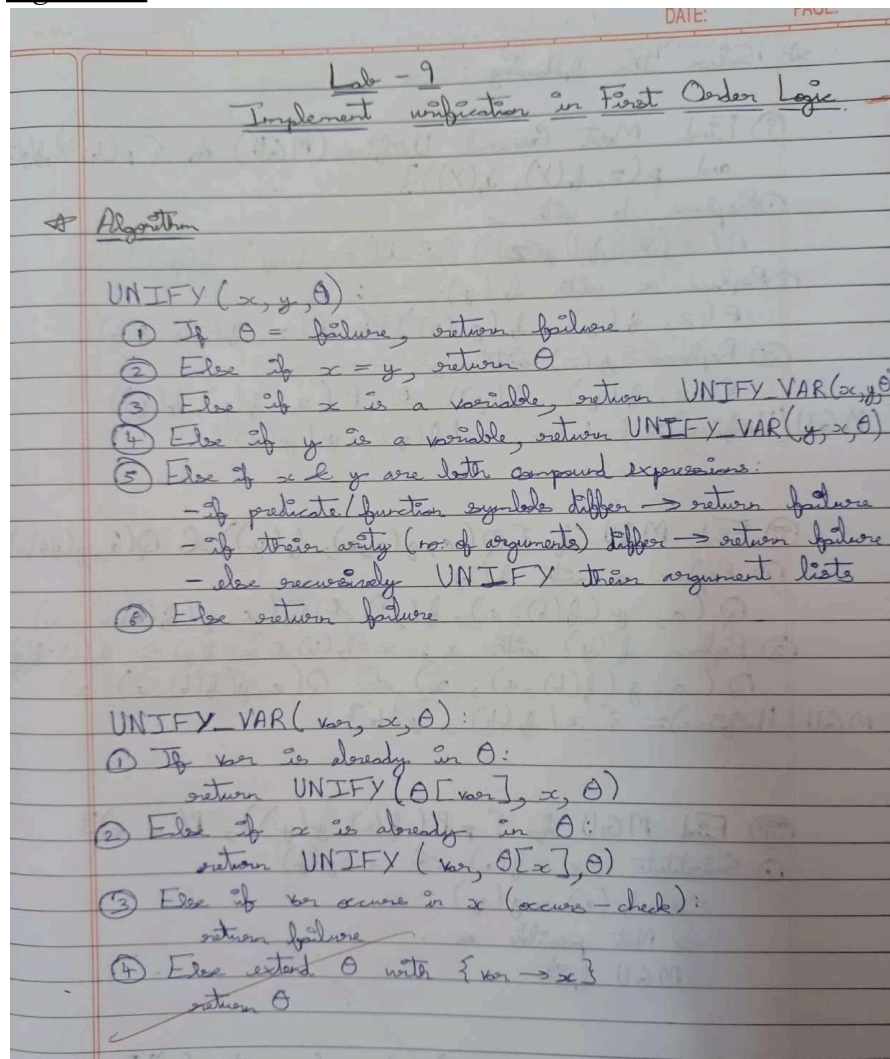 DATE:
PAGE:
Lab - 9
Implement unification in First Order Logic
Algorithm
UNIFY (x, y, θ) :
① If θ = failure, return failure
② Else if x = y, return θ
③ Else if x is a variable, return UNIFY_VAR(x,y,θ)
④ Else if y is a variable, return UNIFY_VAR(y,x,θ)
⑤ Else if x & y are both compound expressions:
- if predicate/function symbols differ → return failure
- if their arity (no. of arguments) differ → return failure
- else recursively UNIFY their argument lists
⑥ Else return failure
UNIFY_VAR( var, x, θ) :
① If var is already in θ:
return UNIFY(θ[var], x, θ)
② Else if x is already in θ:
return UNIFY (var, θ[x],θ)
③ Else if var occurs in x (occurs - check):
return failure
④ Else extend θ with {var → x}
return θ